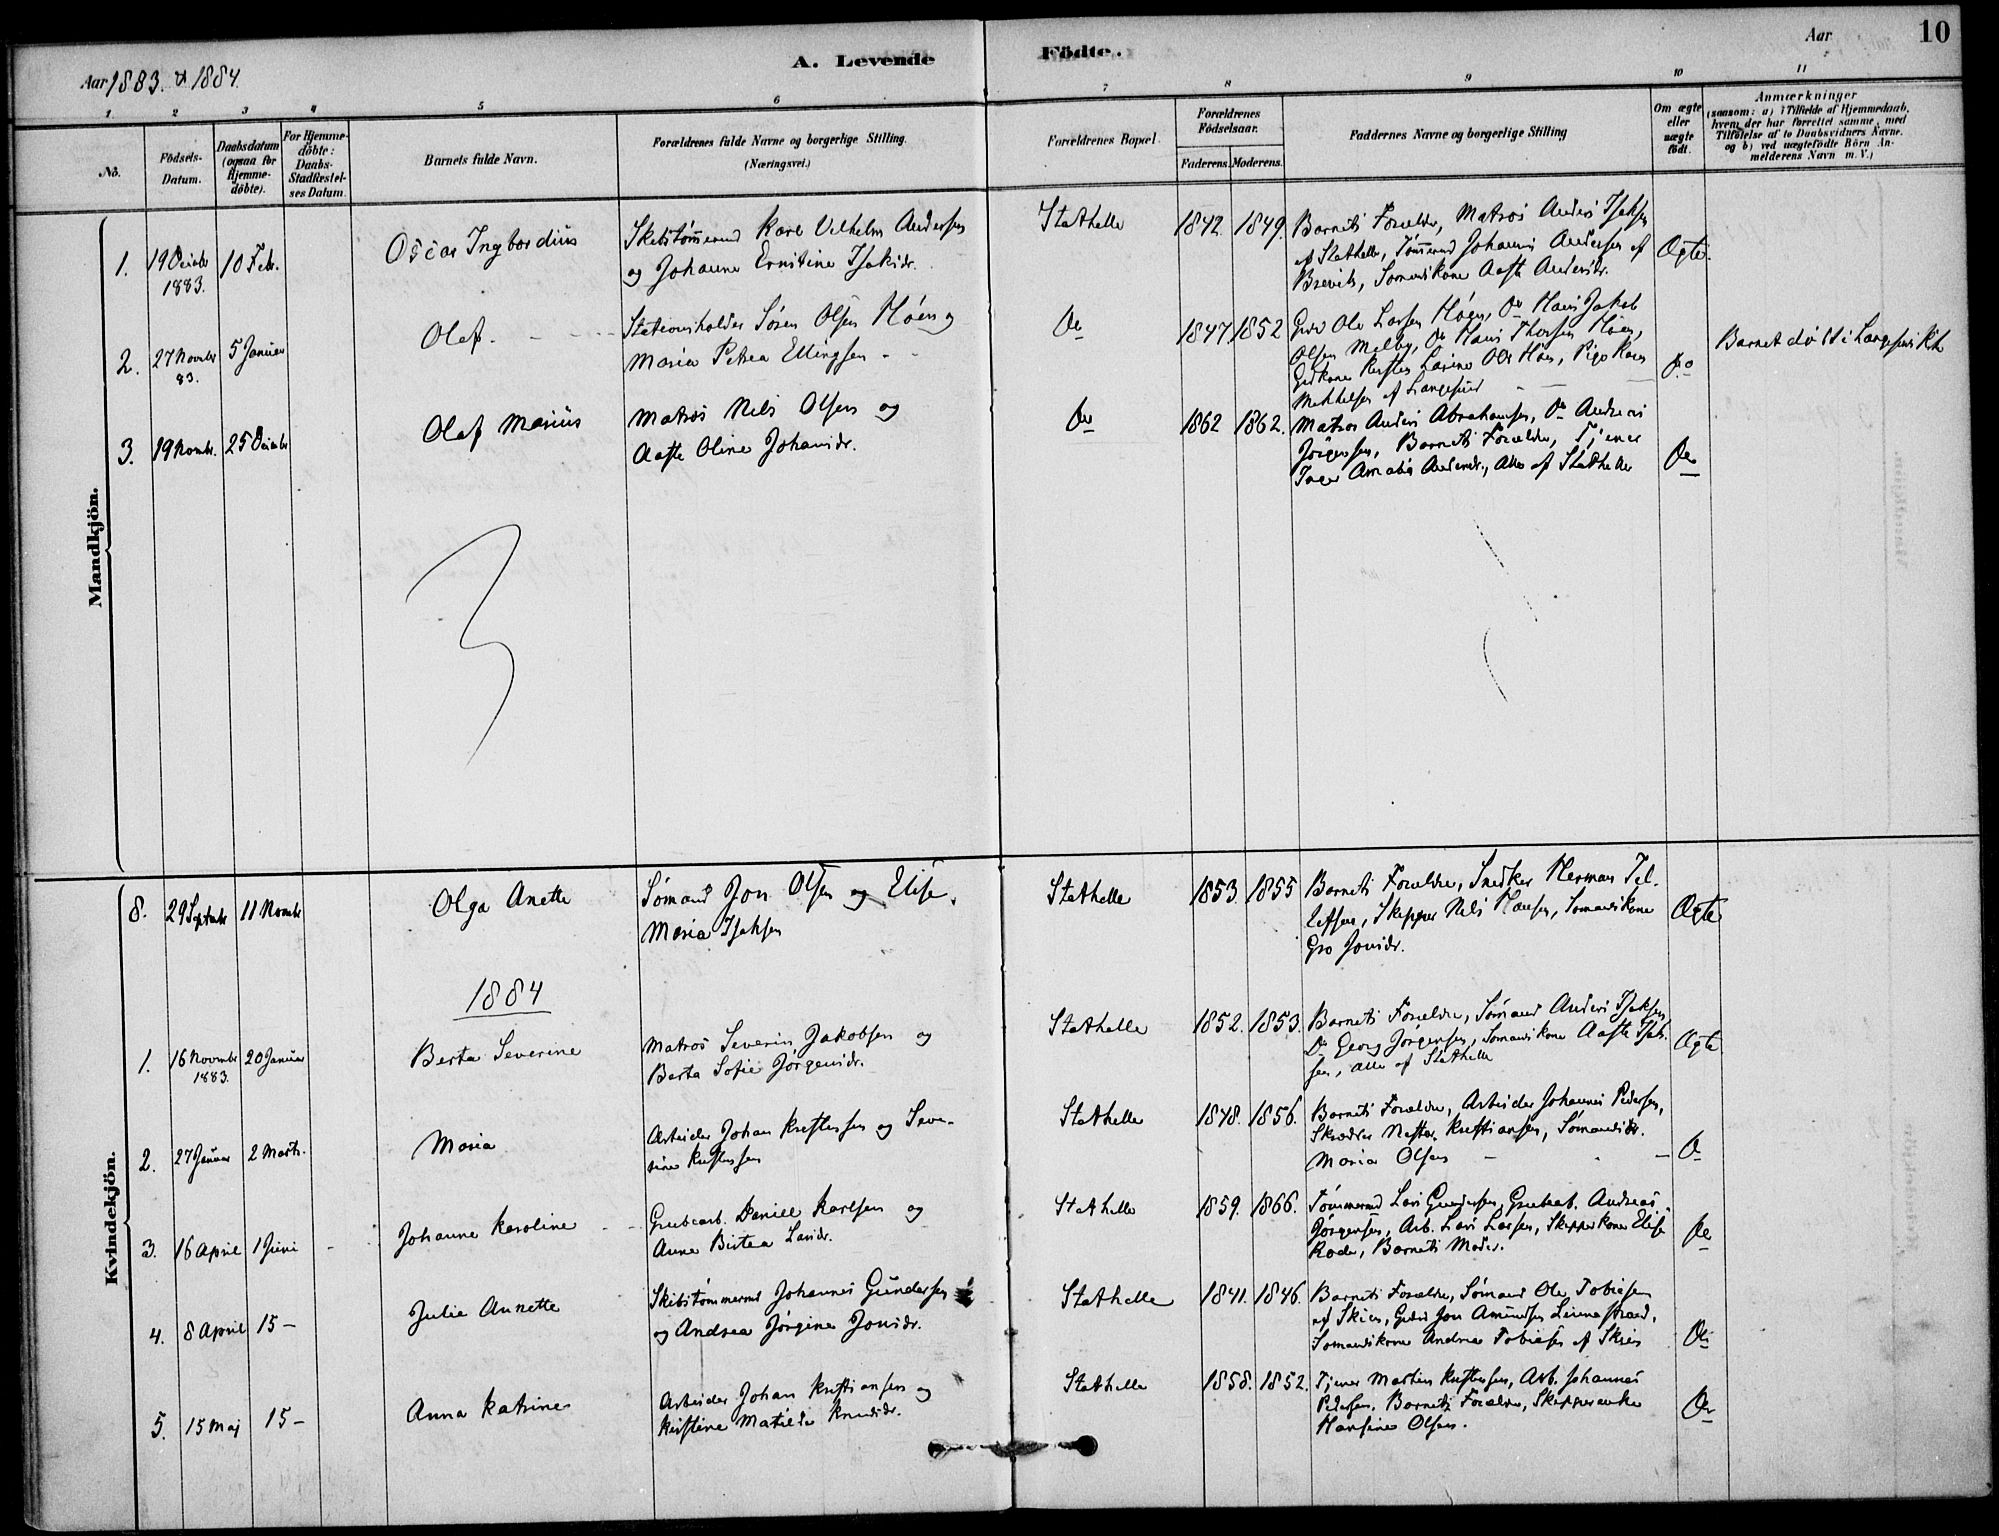 A. Levende Födte.
Aar 1883. & 1884.
Aar
10
1 2 3 4 5 6 7 8 9 10 11
No.
Födsels-
Datum.
Daabsdatum
(ogsaa for
Hjemme-
döbte).
For Hjemme-
döbte:
Daabs-
Stadfæstel-
ses Datum.
Barnets fulde Navn.
Forældrenes fulde Navne og borgerlige Stilling.
(Næringsvei.)
Forældrenes Bopæl.
Forældrenes
Födselsaar.
Faderens. Moderens.
Faddernes Navne og borgerlige Stilling
Om ægte
eller
uægte
födt.
Anmærkninger
(saasom: a) i Tilfælde af Hjemmedaab,
hvem der har forrettet samme, med
Tilföielse af to Daabsvidners Navne.
og b) ved uægtefödte Börn An-
melderens Navn m. V.)
Mandkjön.
1. 19 Decbr 1883. 10 Febr.
Oscar Ingvardius
Skibstømmermd Karl Vilhelm Andersen
og Johanne Ernstine Isaksdr.
Stathelle
1842. 1849.
Barnets Forældre, Matros Anders Isaksen
af Stathelle, Tømmermd Johannes Andersen af
Brevik, Sømandskone Aaste Andersdr.
Ægte.
2. 27 Novmbr 83. 5 Januar
Olaf.
Stationsholder Søren Olsen Høen og
Maria Petrea Ellingsen
Do
1847 1852
Grdr Ole Larsen Høen, Do Hans Jakob
Olsen Melby, Do Hans Thorsen Høen,
Grdkone Kirsten Larine Ols Høen, Pige Karen
Mikkelsen af Langesund
Do
Barnet døbt i Langesunds Kirke
3. 19 Novmbr. 25 Decmbr
Olaf Marius
Matros Nils Olsen og
Aaste Oline Johansdr.
Do
1862 1862.
Matros Anders Abrahamsen, Do Andreas
Jörgensen, Barnets Forældre, Tjener
Inger Amalia Andersdr., alle af Stathelle
Do
3
Kvindekjön.
8. 29 Septmbr 11 Novmbr
Olga Anette
Sømand Jon Olsen og Elise
Maria Isaksen
Stathelle
1853. 1855
Barnets Forældre, Snedker Herman Tel-
lefsen, Skipper Nils Hansen, Sømandskone
Gro Jonsdr.
Ægte
1884
1. 16 Novmbr 1883. 20 Januar
Berta Severine
Matros Severin Jakobsen og
Berta Sofie Jørgensdr.
Stathelle
1852. 1853.
Barnets Forældre, Sømand Anders Isaksen,
Do Georg Jörgensen, Sømandskone Aaste Isak-
sen, alle af Stathelle
Ægte
2. 27 Januar 2 Marts.
Maria
Arbeider Johan Kristensen og Seve-
rine Kristensen
Stathelle
1848. 1856.
Barnets Forældre, Arbeider Johannes Pedersen,
Skrædder Kristiansen, Sømandsk.
Maria Olsen
Do
3. 16 April 1 Juni
Johanne Karoline
Grubearb. Daniel Karlsen og
Anne Birtea Larsdr.
Stathelle
1859. 1866.
Tømmermd Lars Gundersen, Grubearb. Andreas
Jørgensen, Arb. Lars Larsen, Skipperkone Elise
Rode, Barnets Moder.
Do
4. 8 April 15 –
Julie Annette
Skibstømmermd Johannes Gundersen
og Andrea Jørgine Jonsdr.
Stathelle
1841. 1846.
Barnets Forældre, Sømand Ole Tobiesen
af Skien, Grdbr Jon Amundsen Linnestrand,
Sømandskone Andrea Tobiesen af Skien
Do
5. 15 Maj 15 –
Anna Katrine
Arbeider Johan Kristiansen og
Kirstine Matilde Knudsdr.
Stathelle
1858. 1852.
Tjener Martin Kristensen, Arb. Johannes
Pedersen, Barnets Forældre, Skipperenke
Hansine Olsen.
Do